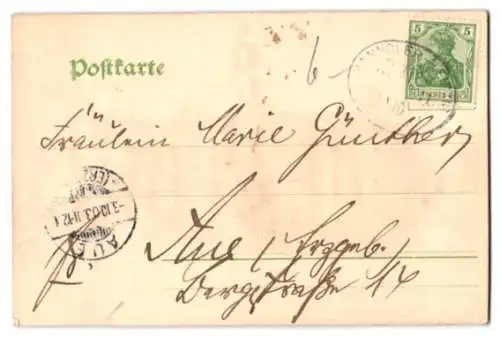 Postkarte
5 5
6
HANNOVER
Fräulein Marie Günther
AUE
(ERZ
3.10.03.11-12.V
Aue, Erzgeb.
Bergstraße 14